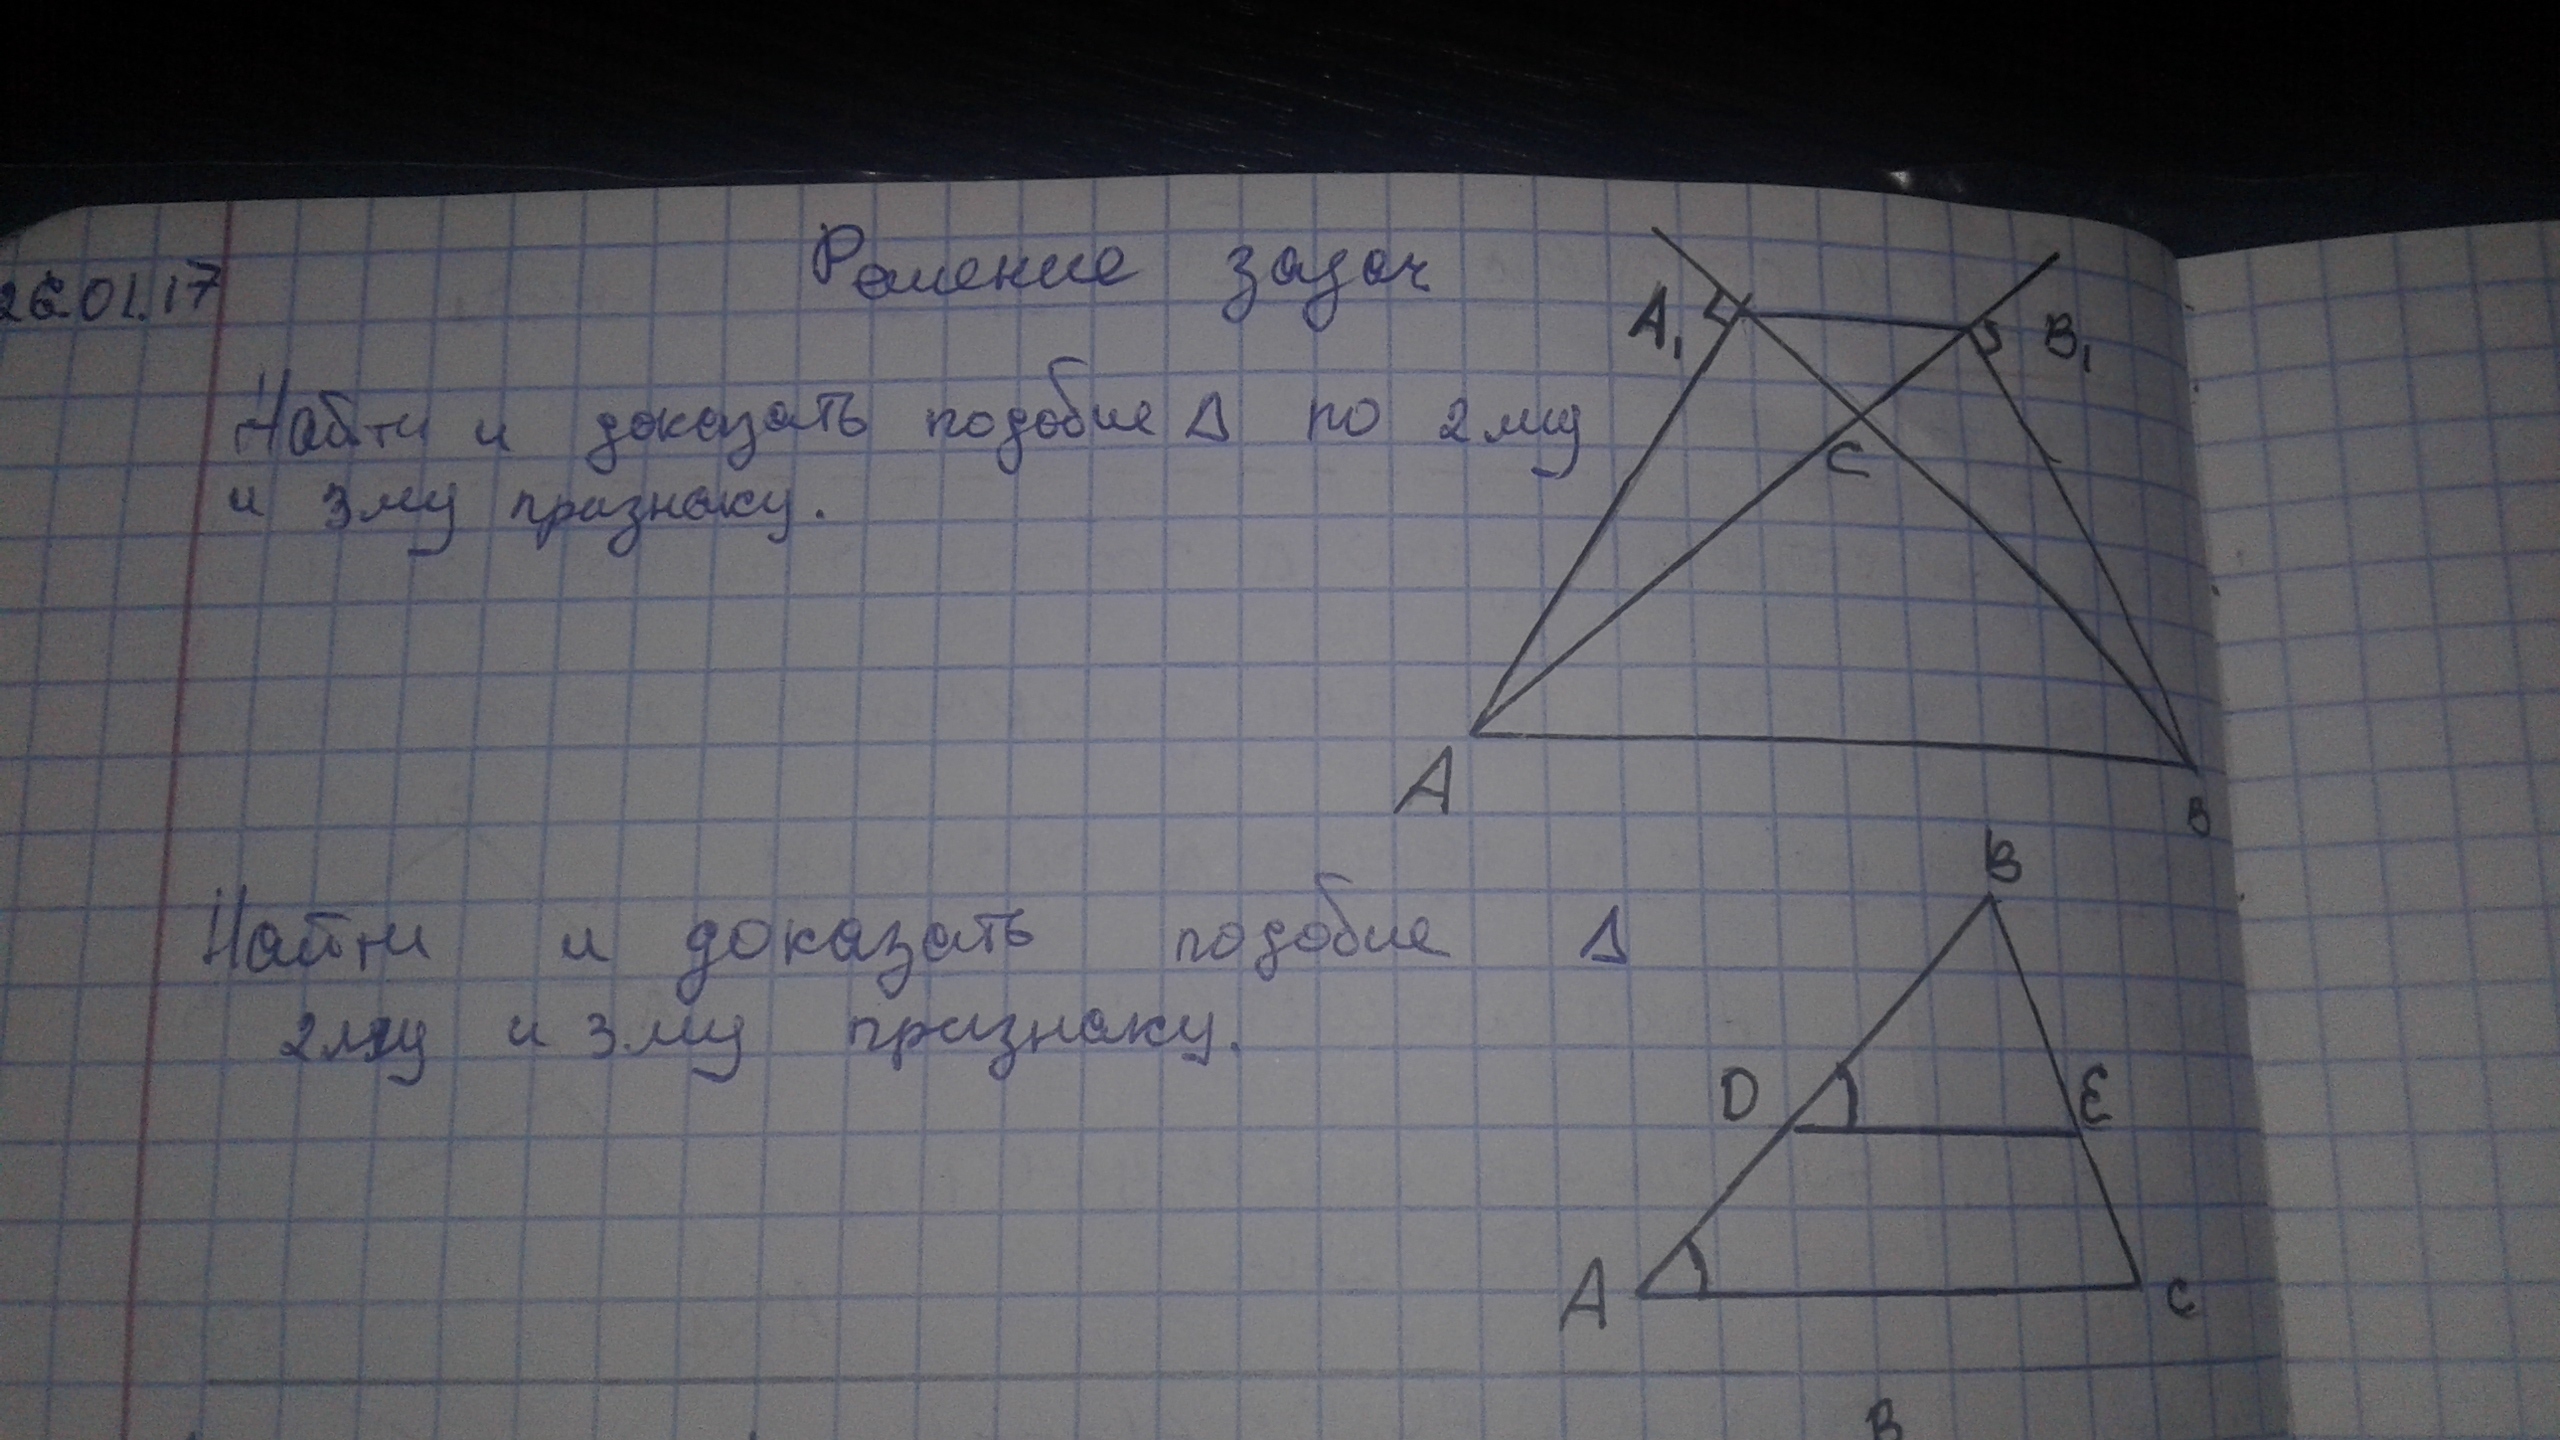 26.01.17
Решение задач
Найти и доказать подобие Δ по 2му
и 3му признаку.
A₁
B₁
C
A
B
Найти и доказать подобие Δ
2му и 3му признаку.
B
D
E
A
C
B